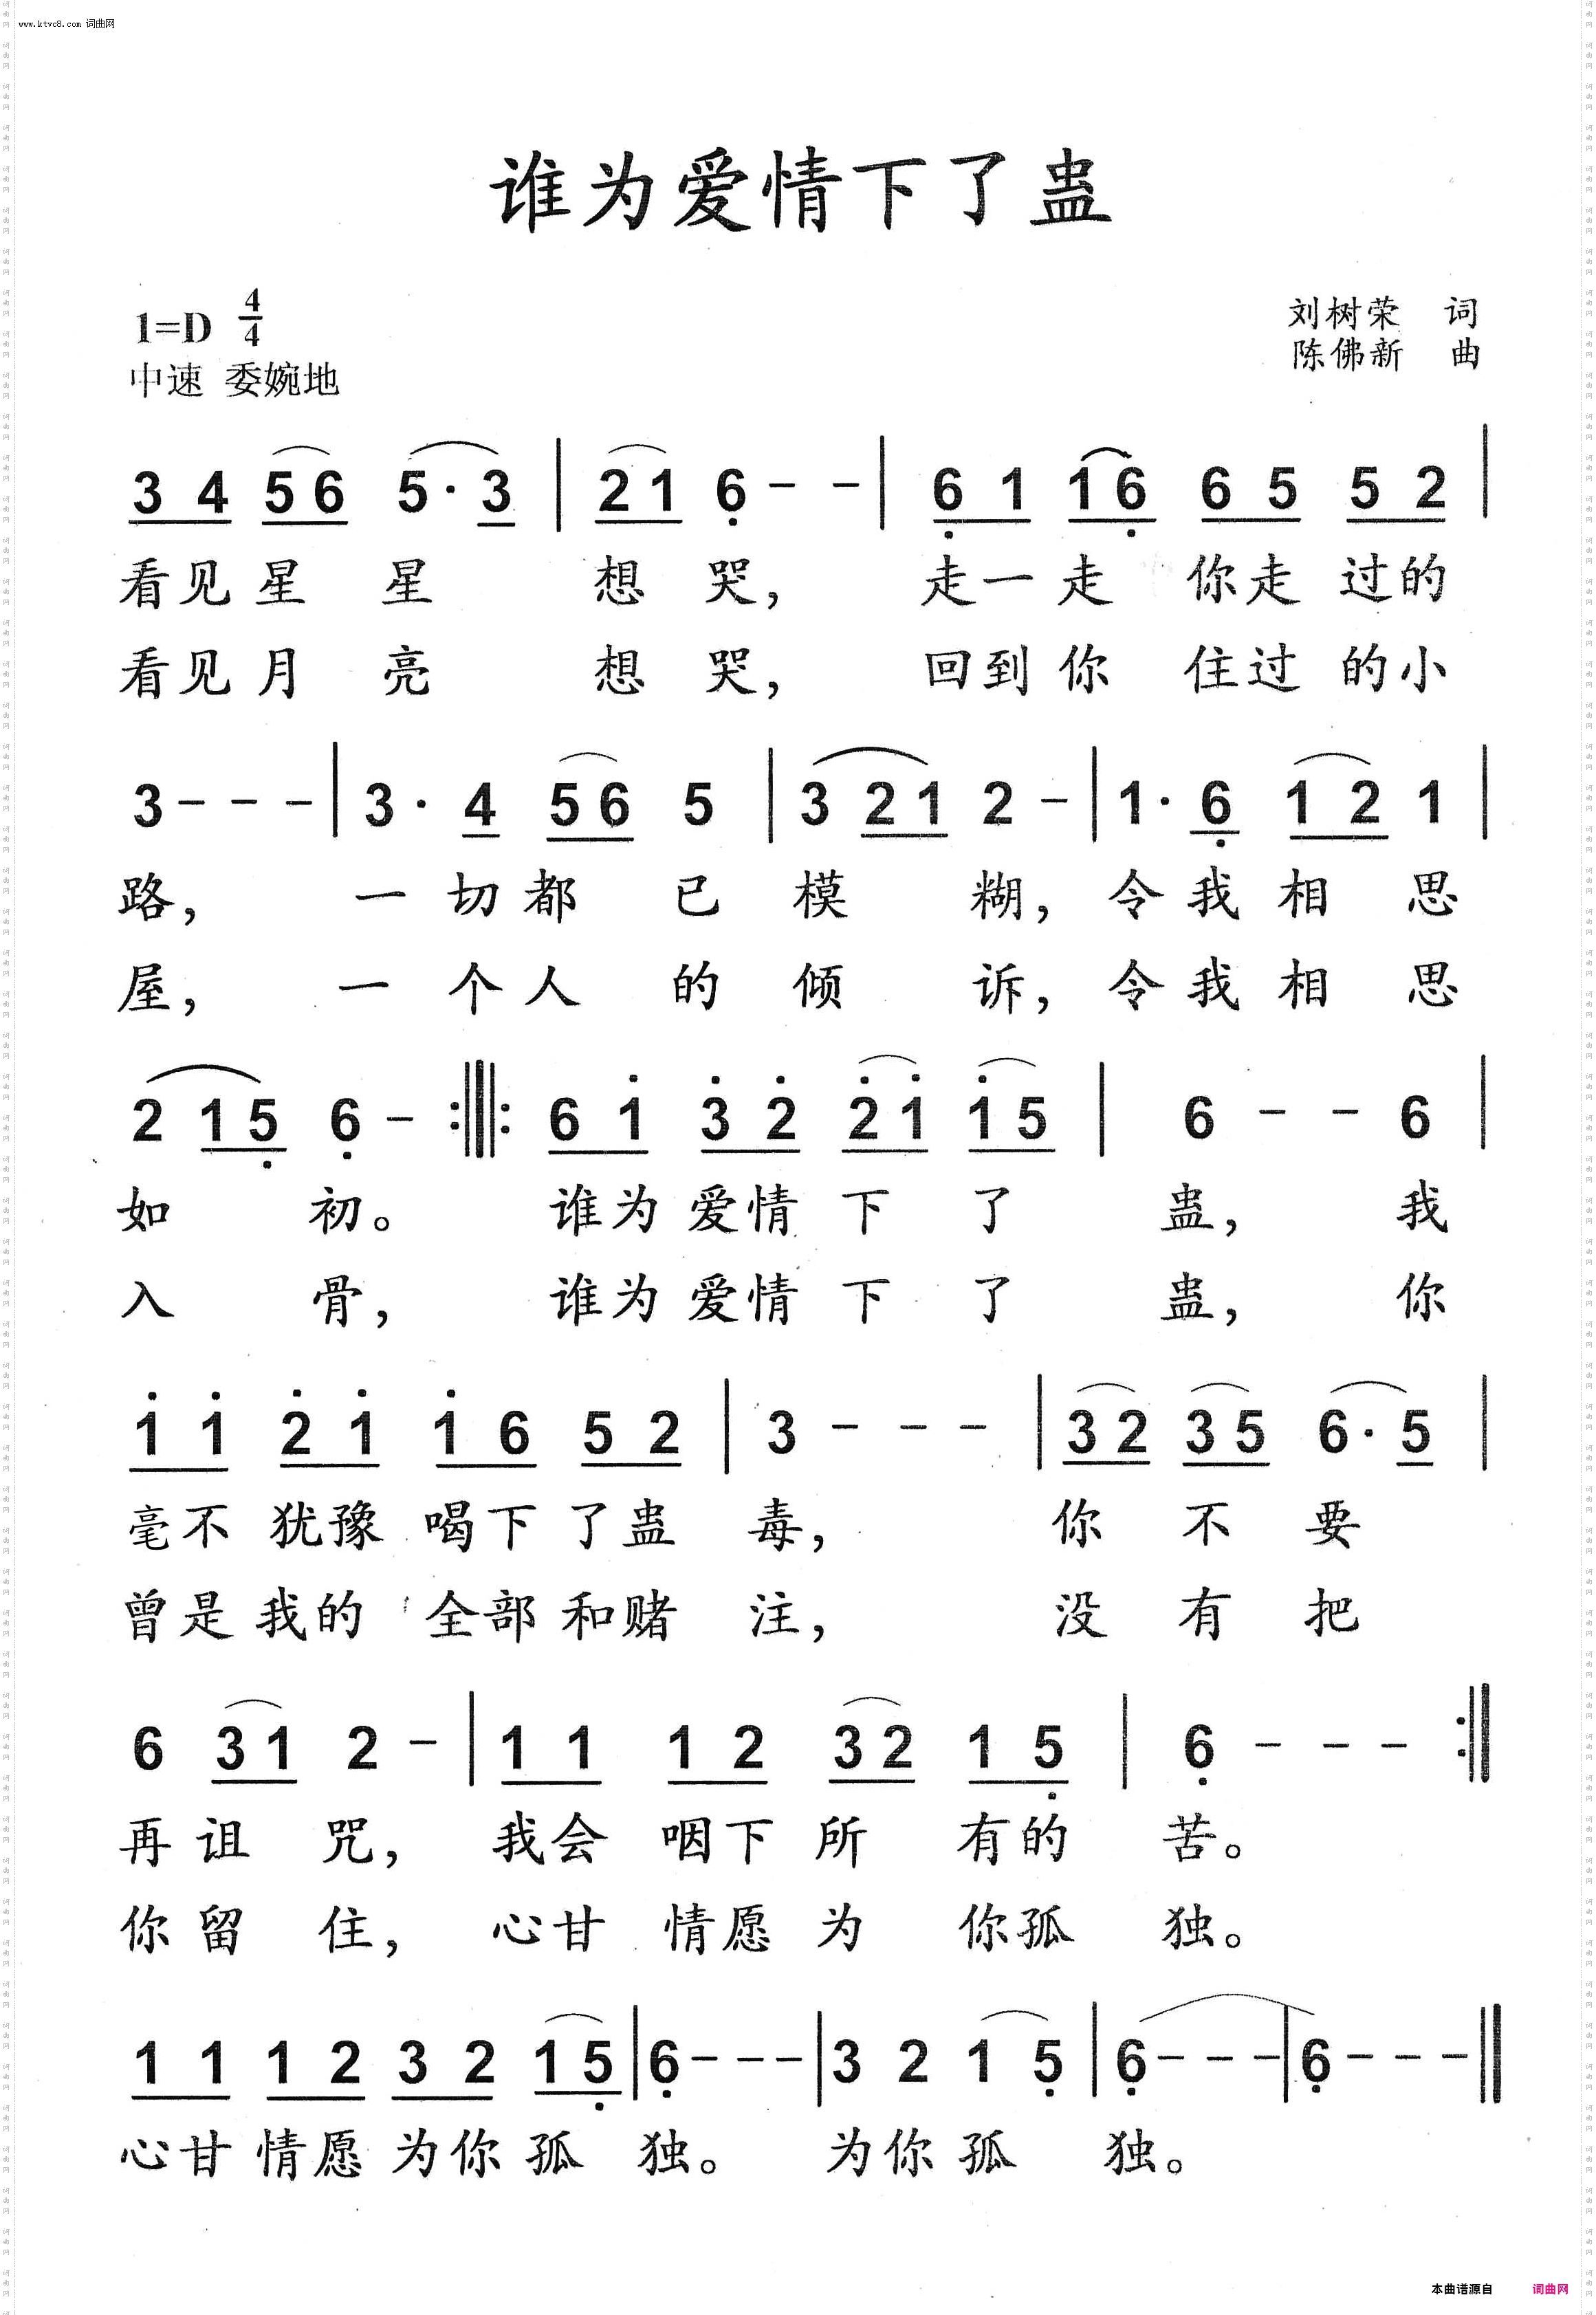 www.ktvc8.com 词曲网
谁为爱情下了蛊
1=D 4/4
刘树荣 词
中速 委婉地
陈佛新 曲
3 4 5 6 5· 3 | 2 1 6 - - | 6 1 1 6 6 5 5 2 |
看见星 星 想 哭， 走一走 你走 过的
看见月 亮 想 哭， 回到你 住过 的小
3 - - - | 3· 4 5 6 5 | 3 2 1 2 - | 1· 6 1 2 1 |
路， 一 切 都 已 模 糊， 令 我 相 思
屋， 一 个 人 的 倾 诉， 令 我 相 思
2 1 5 6 - :||: 6 1 3 2 2 1 1 5 | 6 - - 6 |
如 初。 谁为 爱情 下 了 蛊， 我
入 骨， 谁为 爱情 下 了 蛊， 你
1 1 2 1 1 6 5 2 | 3 - - - | 3 2 3 5 6· 5 |
毫不 犹豫 喝下 了蛊 毒， 你 不 要
曾是 我的 全部 和赌 注， 没 有 把
6 3 1 2 - | 1 1 1 2 3 2 1 5 | 6 - - - :||
再 诅 咒， 我会 咽下 所 有的 苦。
你 留 住， 心甘 情愿 为 你孤 独。
1 1 1 2 3 2 1 5 | 6 - - - | 3 2 1 5 | 6 - - - | 6 - - - ||
心甘 情愿 为你 孤 独。 为你 孤 独。
本曲谱源自 词曲网